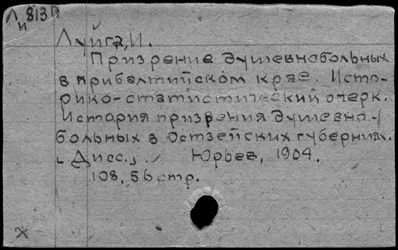 Л 813
и
Луйга, И.
Призрение душевнобольных
в прибалтийском крае. Исто-
рико-статистический очерк.
История призрения душевно-
больных в Остзейских губерниях.
Дисс., Юрьев, 1904.
108, 56 стр.